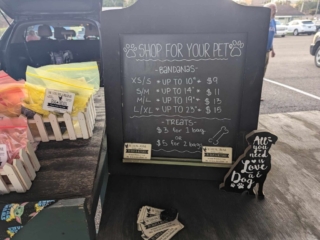 SHOP FOR YOUR PET
- BANDANAS -
XS/S • UP TO 10" • $9
S/M • UP TO 14" • $11
M/L • UP TO 19" • $13
L/XL • UP TO 23" • $15
- TREATS -
$3 for 1 bag
or
$5 for 2 bags
All
you
need
is
Love
& a
Dog